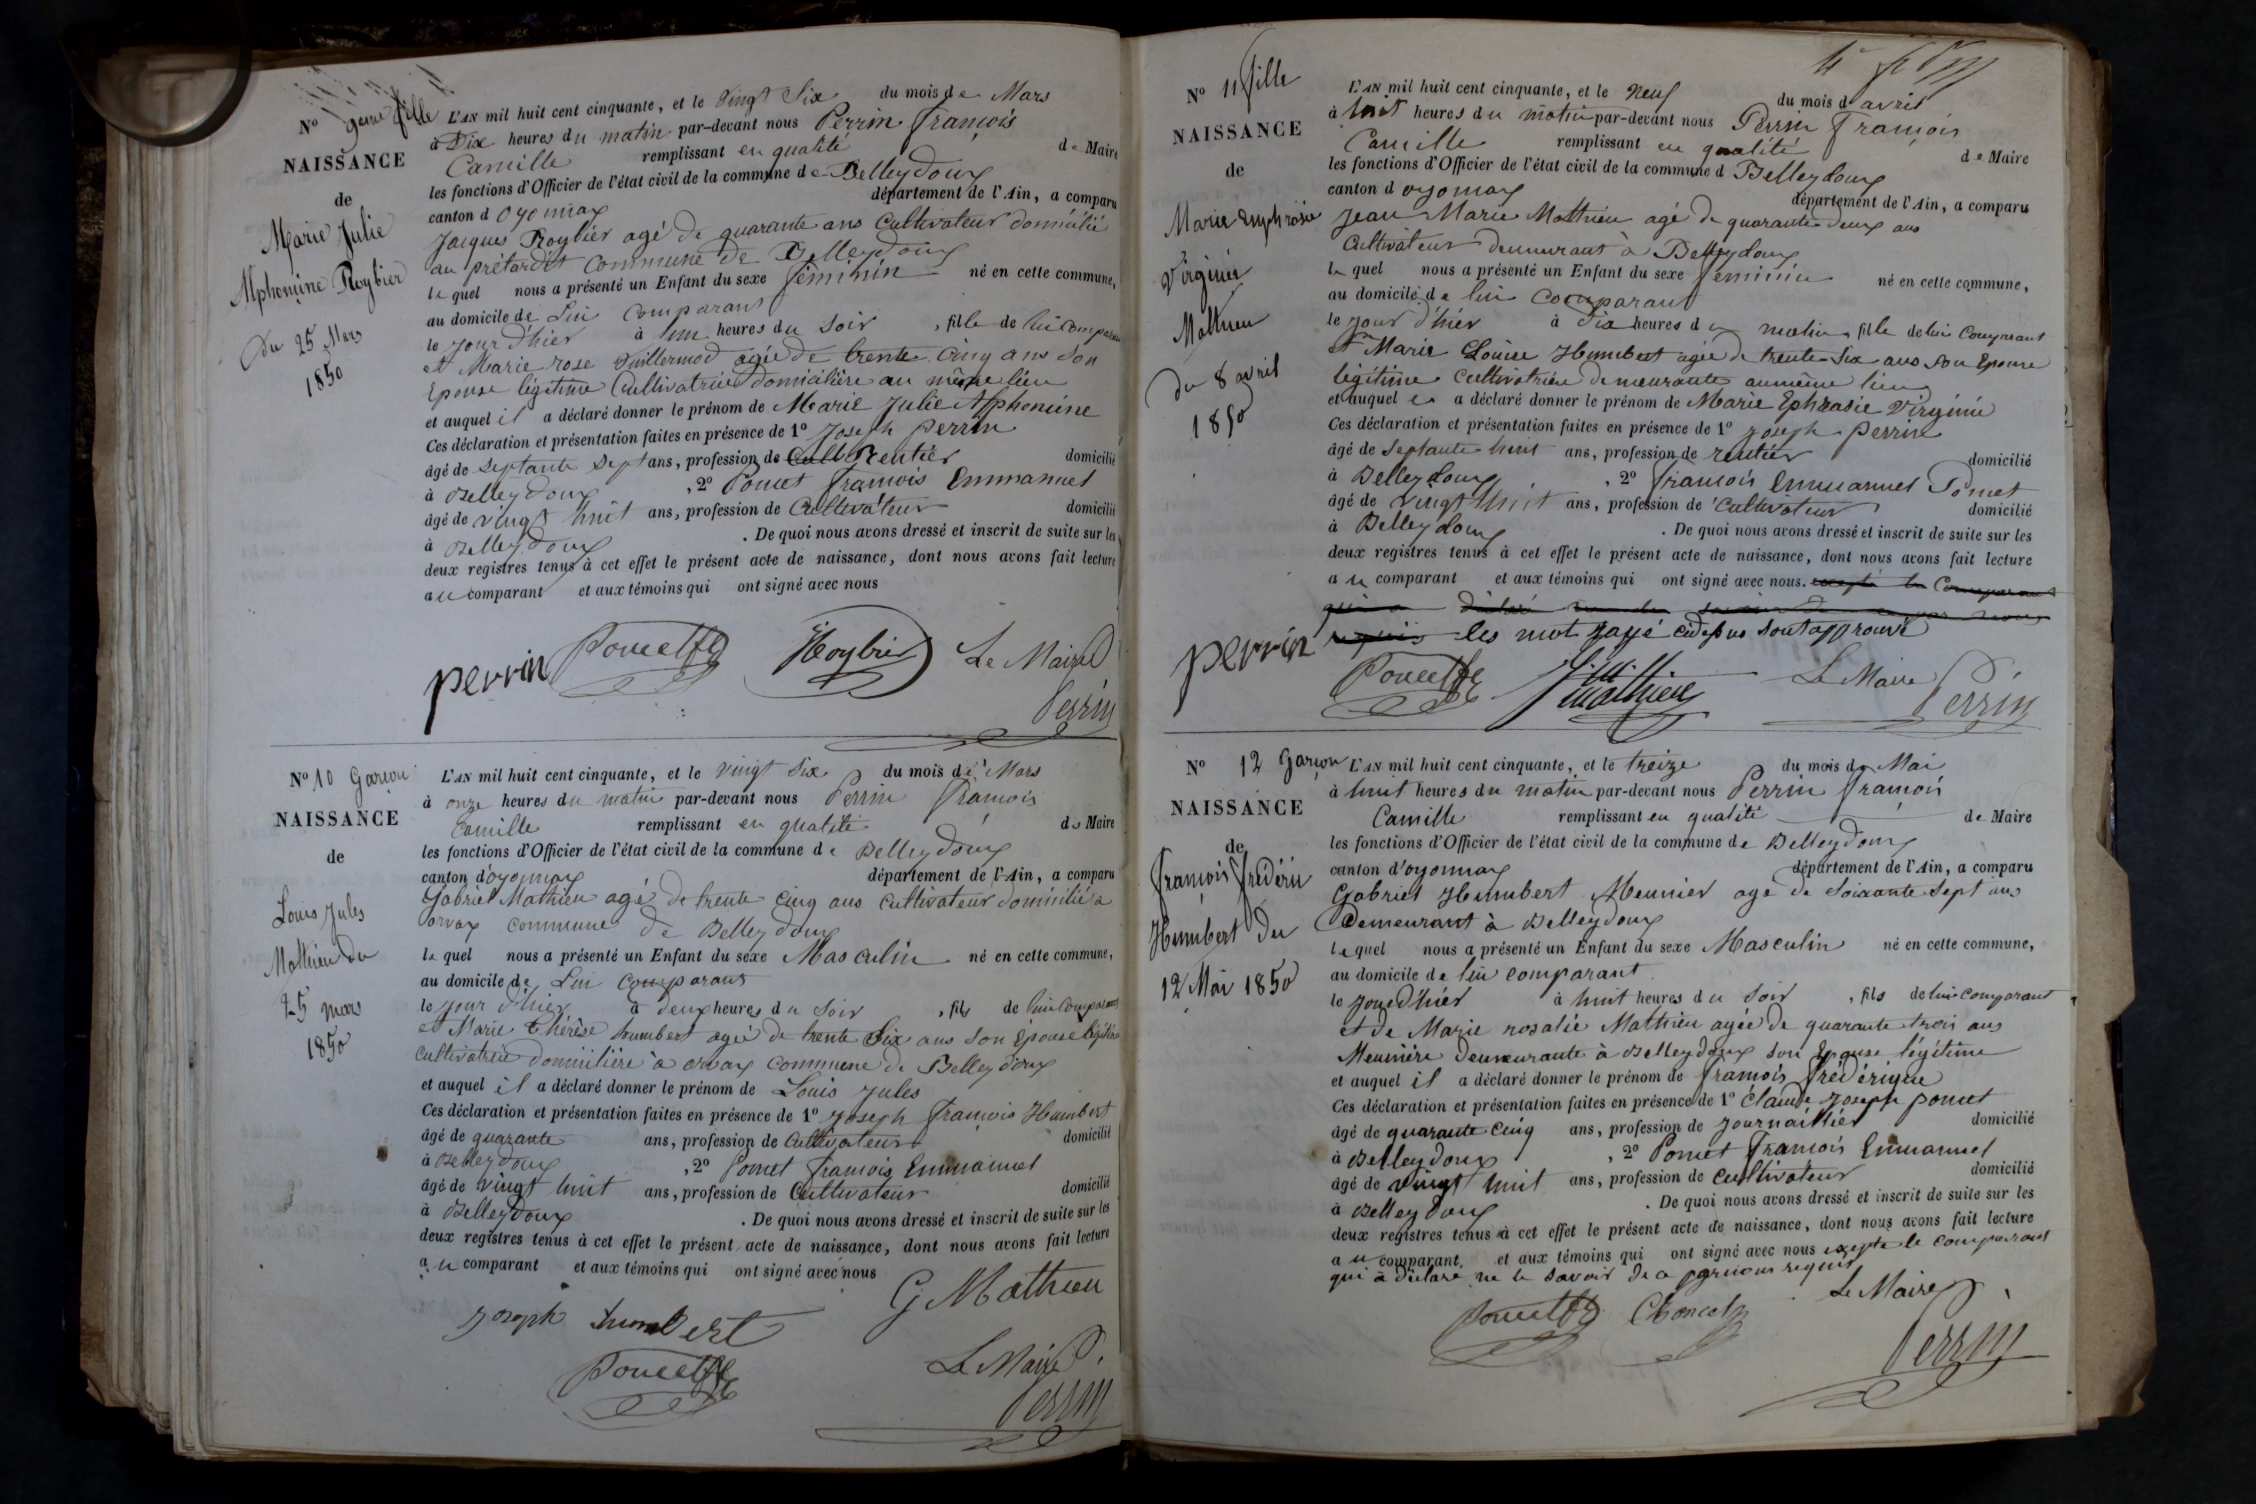 No 9eme fille
NAISSANCE
de
Marie Julie
Alphonsine Roybier
du 25 Mars
1850
L'AN mil huit cent cinquante, et le vingt Six du mois de Mars
à Dix heures du matin par-devant nous Perrin François
Camille remplissant en qualité de Maire
les fonctions d'Officier de l'état civil de la commune de Belleydoux
canton d oyonnax département de l'Ain, a comparu
Jacques Roybier agé de quarante ans Cultivateur domicilié
au prétardit commune de Belleydoux
le quel nous a présenté un Enfant du sexe féminin né en cette commune,
au domicile de Lui comparant
le jour d'hier à une heures du Soir , fille de lui comparant
et Marie rose Vuillermod agée de trente cinq ans Son
Epouse légitime Cultivatrice domicilière au même lieu
et auquel il a déclaré donner le prénom de Marie Julie Alphonsine
Ces déclaration et présentation faites en présence de 1º Joseph Perrin
âgé de septante sept ans, profession de Cult Rentier domicilié
à Belleydoux , 2º Poncet François Emmanuel
âgé de vingt huit ans, profession de Cultivateur domicilié
à Belleydoux . De quoi nous avons dressé et inscrit de suite sur les
deux registres tenus à cet effet le présent acte de naissance, dont nous avons fait lecture
au comparant et aux témoins qui ont signé avec nous
perrin Poncet fe JRoybier Le Maire
Perrin
No 10 Garçon
NAISSANCE
de
Louis Jules
Mathieu du
25 mars
1850
L'AN mil huit cent cinquante, et le vingt Six du mois de Mars
à onze heures du matin par-devant nous Perrin François
Camille remplissant en qualité de Maire
les fonctions d'Officier de l'état civil de la commune de Belleydoux
canton d'oyonnax département de l'Ain, a comparu
Gabriel Mathieu agé de trente cinq ans cultivateur domicilié à
orvax commune de Belleydoux
le quel nous a présenté un Enfant du sexe Masculin né en cette commune,
au domicile de Lui comparant
le jour d'hier à deux heures du Soir , fils de lui comparant
et Marie thérèse humbert agé de trente Six ans son Epouse légitime
cultivatrice domicilière à orvax commune de Belleydoux
et auquel il a déclaré donner le prénom de Louis Jules
Ces déclaration et présentation faites en présence de 1º Joseph François Humbert
âgé de quarante ans, profession de Cultivateur domicilié
à Belleydoux , 2º Poncet François Emmanuel
âgé de vingt huit ans, profession de Cultivateur domicilié
à Belleydoux . De quoi nous avons dressé et inscrit de suite sur les
deux registres tenus à cet effet le présent acte de naissance, dont nous avons fait lecture
au comparant et aux témoins qui ont signé avec nous
G Mathieu
joseph humbert
Poncet fe Le Maire
Perrin
No 11 fille
NAISSANCE
de
Marie Euphrosie
Virginie
Mathieu
du 8 avril
1850
L'AN mil huit cent cinquante, et le neuf du mois d avril
à huit heures du matin par-devant nous Perrin François
Camille remplissant en qualité de Maire
les fonctions d'Officier de l'état civil de la commune d Belleydoux
canton d oyonnax département de l'Ain, a comparu
Jean Marie Mathieu agé de quarante deux ans
Cultivateur demeurant à Belleydoux
le quel nous a présenté un Enfant du sexe féminin né en cette commune,
au domicile de lui comparant
le jour d'hier à Dix heures du matin , fille de lui Comparant
et Marie Louise Humbert agée de trente-Six ans son Epouse
légitime cultivatrice demeurante au même lieu
et auquel il a déclaré donner le prénom de Marie Ephrasie Virginie
Ces déclaration et présentation faites en présence de 1º joseph perrin
âgé de Septante huit ans, profession de rentier domicilié
à Belleydoux , 2º François Emmanuel Poncet
âgé de vingt huit ans, profession de Cultivateur domicilié
à Belleydoux . De quoi nous avons dressé et inscrit de suite sur les
deux registres tenus à cet effet le présent acte de naissance, dont nous avons fait lecture
au comparant et aux témoins qui ont signé avec nous. excepté le Comparant
qui a déclaré ne le savoir
requis les mot rayé cidessus sont approuvé
perrin Poncet fe mathieu Le Maire Perrin
No 12 Garçon
NAISSANCE
de
François fréderic
Humbert du
12 Mai 1850
L'AN mil huit cent cinquante, et le treize du mois de Mai
à huit heures du matin par-devant nous Perrin François
Camille remplissant en qualité de Maire
les fonctions d'Officier de l'état civil de la commune de Belleydoux
canton d'oyonnax département de l'Ain, a comparu
Gabriel Humbert Meunier agé de Soixante Sept ans
Demeurant à Belleydoux
le quel nous a présenté un Enfant du sexe Masculin né en cette commune,
au domicile de lui comparant
le jour d'hier à huit heures du Soir , fils de lui comparant
et de Marie rosalie Mathieu agée de quarante trois ans
Meunière demeurante à Belleydoux son Epouse légitime
et auquel il a déclaré donner le prénom de François fréderique
Ces déclaration et présentation faites en présence de 1º Claude Joseph poncet
âgé de quarante Cinq ans, profession de Journaillier domicilié
à Belleydoux , 2º Poncet François Emmanuel
âgé de vingt huit ans, profession de cultivateur domicilié
à Belleydoux . De quoi nous avons dressé et inscrit de suite sur les
deux registres tenus à cet effet le présent acte de naissance, dont nous avons fait lecture
au comparant, et aux témoins qui ont signé avec nous excepte le comparant
qui à déclaré ne le savoir de a par nous requis
Poncet fe Le Maire
Perrin